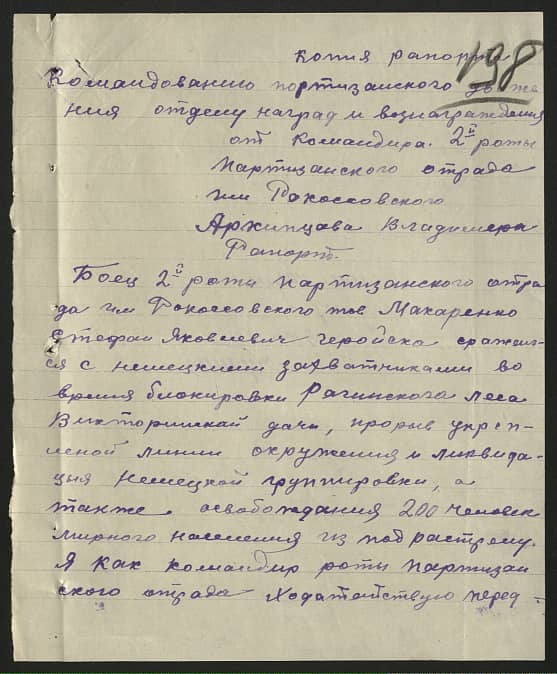 Копия рапорта
198
Командованию портизанского движе
ния отделу наград и вознаграждения
от командира 2й роты
партизанского отряда
им Рокоссовского
Архипцава Владимера
Рапорт.
Боец 2й роты партизанского отря
да им Рокоссовского тов Макаренко
Стефан Яковлевич геройски сражал-
ся с немецкими захватниками во
время блокировки Рачинского леса
дачи, прорыв укреп-
леной линии окружения и ликвида-
ция немецкой группировки, а
также освобождания 200 человек
мирного населения из под растрелу.
Я как командир роты партизан
ского отряда ходатайствую перед